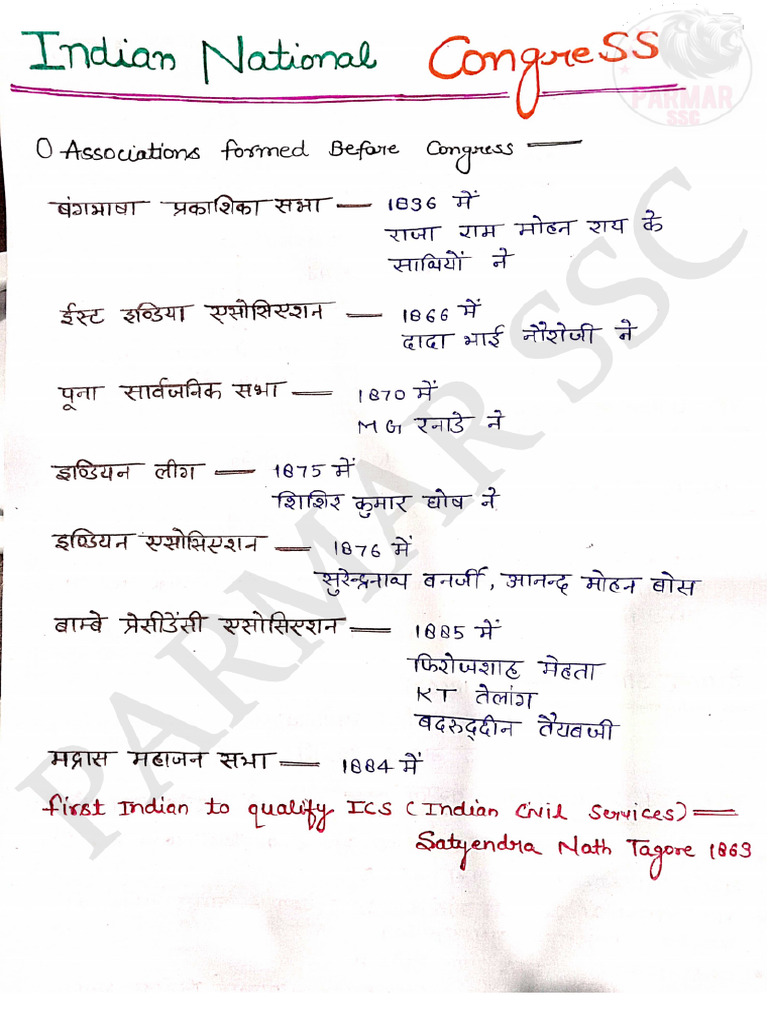 Indian National Congress
PARMAR
SSC
O Associations formed Before Congress —
बंगभाषा प्रकाशिका सभा — 1836 में
राजा राम मोहन राय के
साथियों ने
ईस्ट इण्डिया एसोसिएशन — 1866 में
दादा भाई नौरोजी ने
पूना सार्वजनिक सभा — 1870 में
MG रनाडे ने
इण्डियन लीग — 1875 में
शिशिर कुमार घोष ने
इण्डियन एसोसिएशन — 1876 में
सुरेन्द्रनाथ बनर्जी, आनन्द मोहन बोस
बाम्बे प्रेसीडेंसी एसोसिएशन — 1885 में
फिरोजशाह मेहता
KT तेलांग
बदरुद्दीन तैयबजी
मद्रास महाजन सभा — 1884 में
first Indian to qualify ICS (Indian Civil Services) —
Satyendra Nath Tagore 1863
PARMAR SSC